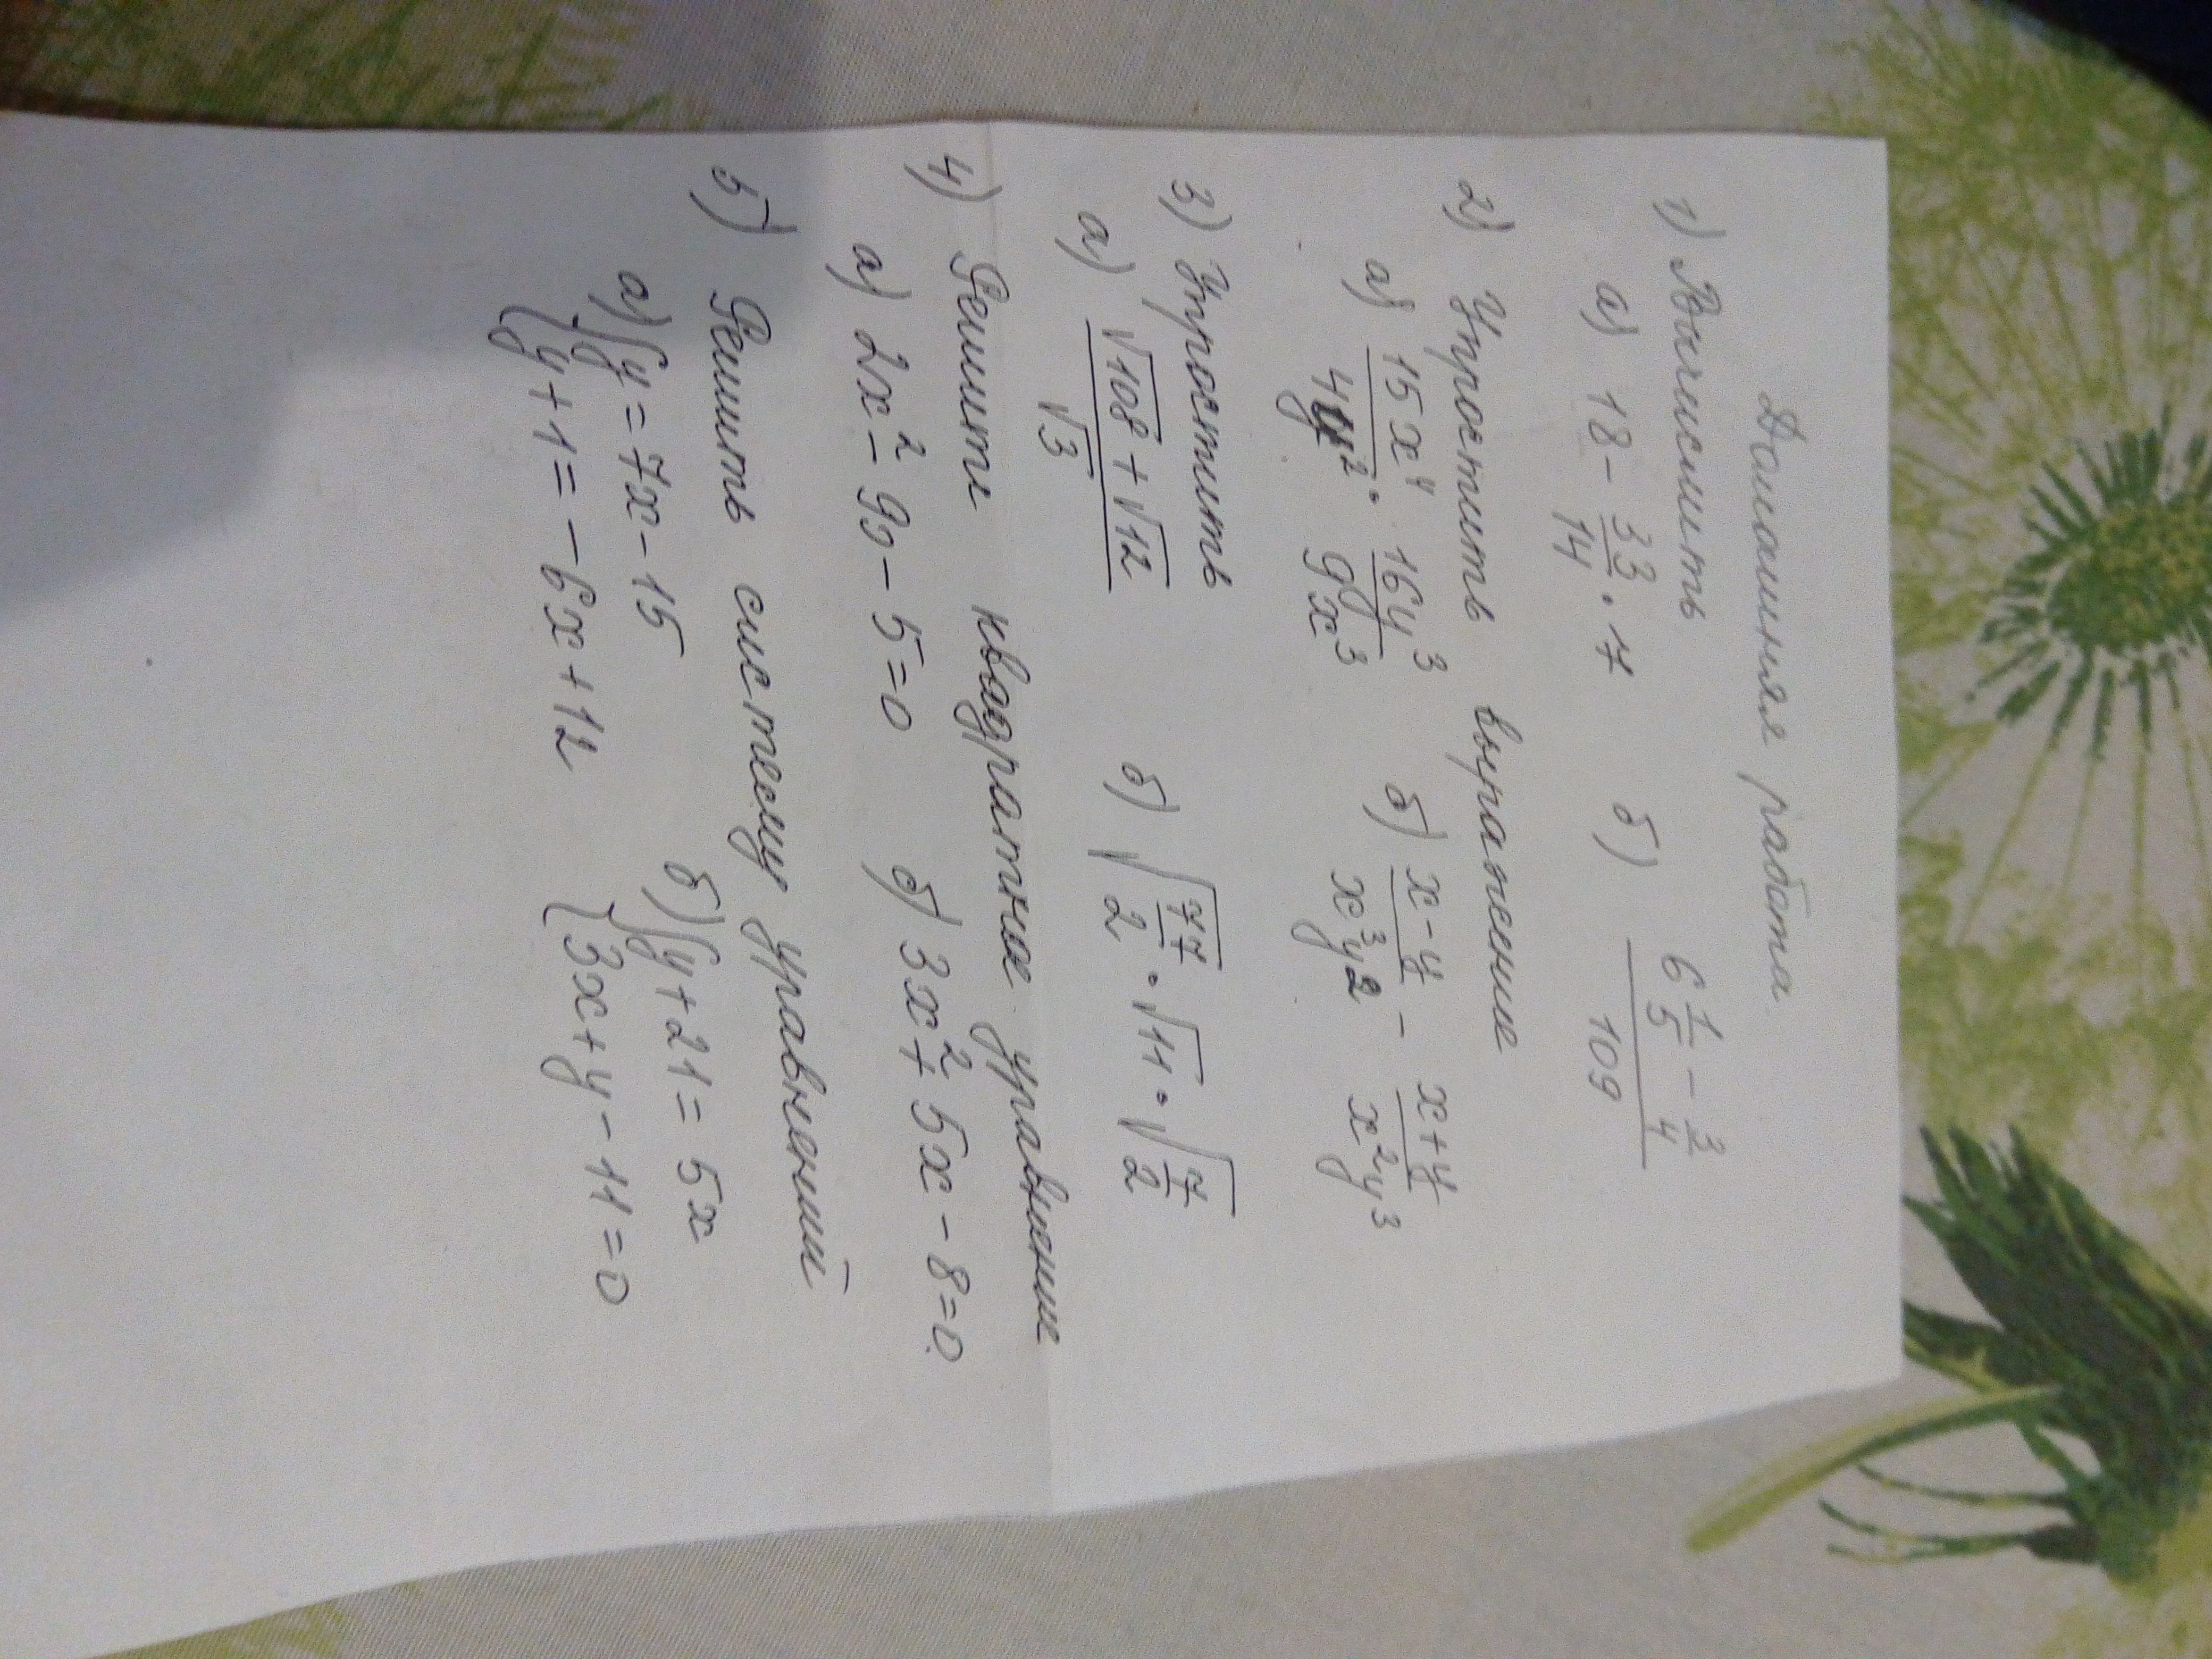 Домашняя работа.
1) Вычислить
а) 18 - 33/14 · 7 б) (6 1/5 - 3/4)/109
2) Упростить выражение
а) 15x⁴/4y² · 16y³/9x³ б) (x-y)/x³y² - (x+y)/x²y³
3) Упростить
а) (√108 + √12)/√3 б) √(77/2) · √11 · √(7/2)
4) Решити квадратное уравнение
а) 2x² - 9x - 5 = 0 б) 3x² + 5x - 8 = 0.
5) Решить систему уравнений
а) { y = 7x - 15 б) { y + 21 = 5x
{ y + 1 = -6x + 12 { 3x + y - 11 = 0